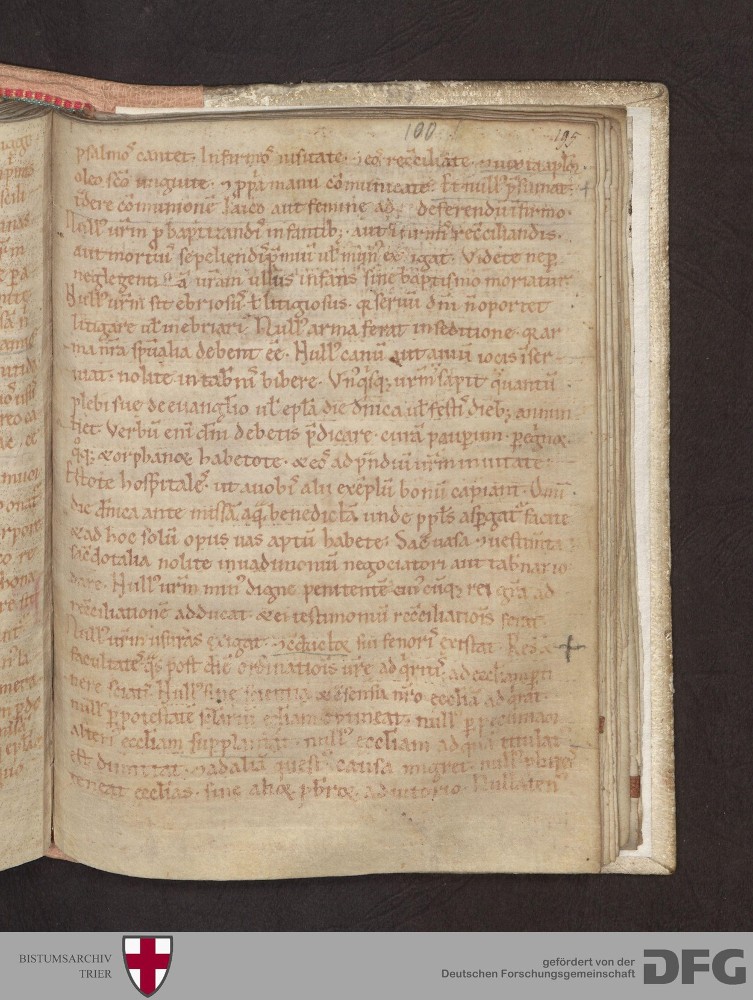 100
195
psalmos cantet. Infirmos uisitate. ⁊ eos recciliate. ⁊ iuxta aplm.
oleo sco unguite. ⁊ ppa manu comunicate. Et null psumat
tdere comunione laico aut femine ad deferendu infirmo.
Null urm p baptizandis infantib; aut infirmis recciliandis.
aut mortuis sepeliendis pmiu ul mun exigat. Videte ne p
neglegentia uram ullus infans sine baptismo moriatur
Null urm sit ebriosus ł litigiosus. q seruu dni n oportet
litigare ul inebriari. Null arma ferat in seditione. q ar
ma nra spualia debent ee. Null canu aut auiu iocis iser
uiat. nolite in tabnis bibere. Vnqsq; urm sapit quantu
plebi sue de euanglio ul epla die dnica ul festis dieb; annun
tiet. Verbu eni dni debetis pdicare. cura pauperum. pegnoz
q; & orphanoz habetote. & eos ad prandiu urm inuitate
Estote hospitales. ut a uobis alii exeplu bonu capiant. Omi
die dnica ante missa aqa benedicta unde ppls aspgatur facite
& ad hoc solu opus uas aptu habete. Sac uasa ⁊ uestimta
sacdotalia nolite in uadimoniu negociatori aut tabnario
dare. Null urm min digne penitente cui cuq; rei gra ad
recciliatione adducat. & ei testimoniu recciliationis ferat.
Null urm usuras exigat. ⁊ cductor sui fenoris existat. Res &
facultates qs post die ordinationis ure adqritis. ad eccliam pti
nere sciatis. Null sine scientia & csensu nro eccliã adqrat.
null p potestate sclarium eccliam optineat. null p pecuniam
alteri eccliam supplantat. null eccliam ad qua titulat
est dimittat. ⁊ ad alia questus causa migret. null plures
teneat ecclias. sine alioz pbroz adiutorio. Nullaten
BISTUMSARCHIV
TRIER
gefördert von der
Deutschen Forschungsgemeinschaft
DFG